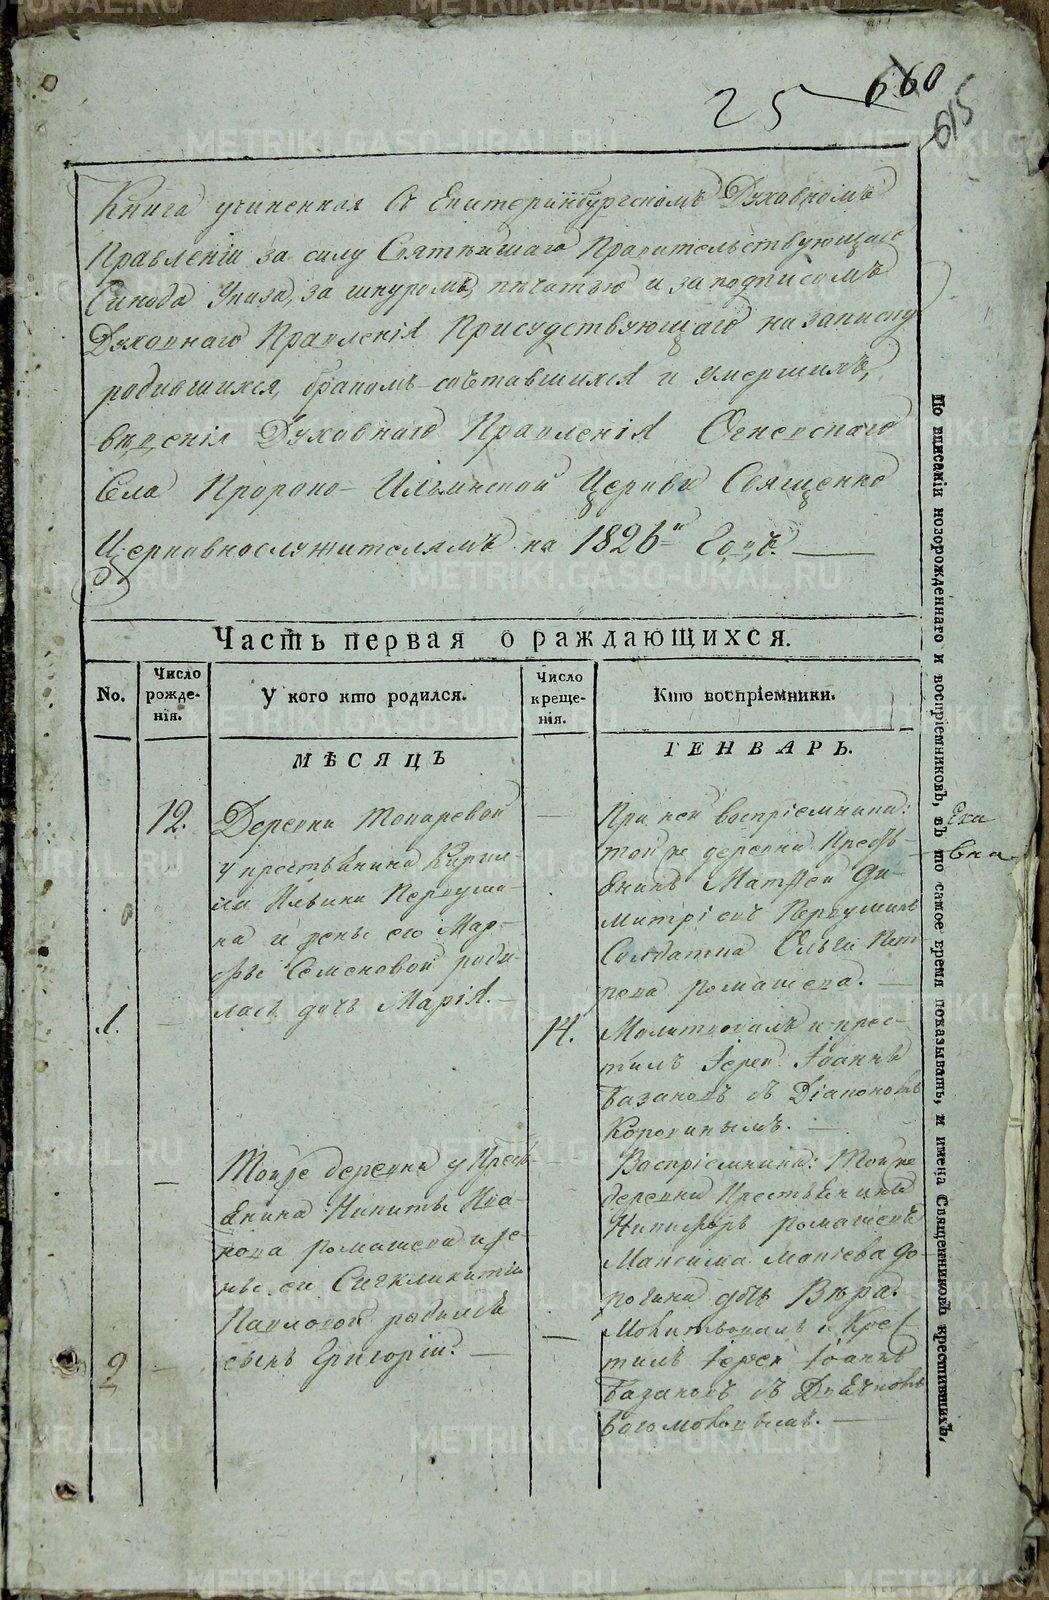 25
660
615
Книга учиненная Въ Екатеринбургскомъ Духовномъ
Правленіи за силу Святѣйшаго Правительствующаго
Синода Указа, за шнуромъ, печатью и за подписомъ
Духовнаго Правленія Присудствующаго на записку
родившихся, бракомъ сочетавшихся и умершихъ,
вѣденія Духовнаго Правленія Огневскаго
Села Пророко-Ильинской Церкви Священно
Церковнослужителямъ на 1826й Годъ.
Часть первая о раждающихся.
No.
Число рожденія.
У кого кто родился.
Число крещенія.
Кто воспріемники.
МѢСЯЦЪ
ГЕНВАРЬ.
12.
Деревни Токаревой
у крестьянина Кирил-
ла Ильина Первуши-
на и жены его Мар-
фы Семеновой роди-
лась дочь Марія.
1.
14.
При ней воспріемники:
той же деревни Кресть-
янинъ Матѳей Ди-
митріевъ Первушинъ
Солдатка Ольга Пет
рова Ромашева.
Молитвовалъ и крес-
тилъ Іерей Іоаннъ
Базановъ съ Діакономъ
Коровинымъ.
Тойже деревни у Кресть-
янина Никиты Ива-
нова Ромашева и же-
ны его
Павловой родился
сынъ Григорій.
2
Воспріемники: Тойже
деревни
Никифоръ Ромашевъ
Максима
дочь Вѣра.
Молитвовалъ и Крес
тилъ Іерей Іоаннъ
Базановъ съ Дьячкомъ
Богомоловымъ.
По вписаніи новорожденнаго и воспріемниковъ, въ то самое время показывать, и имена Священниковъ крестившихъ,
METRIKI.GASO-URAL.RU